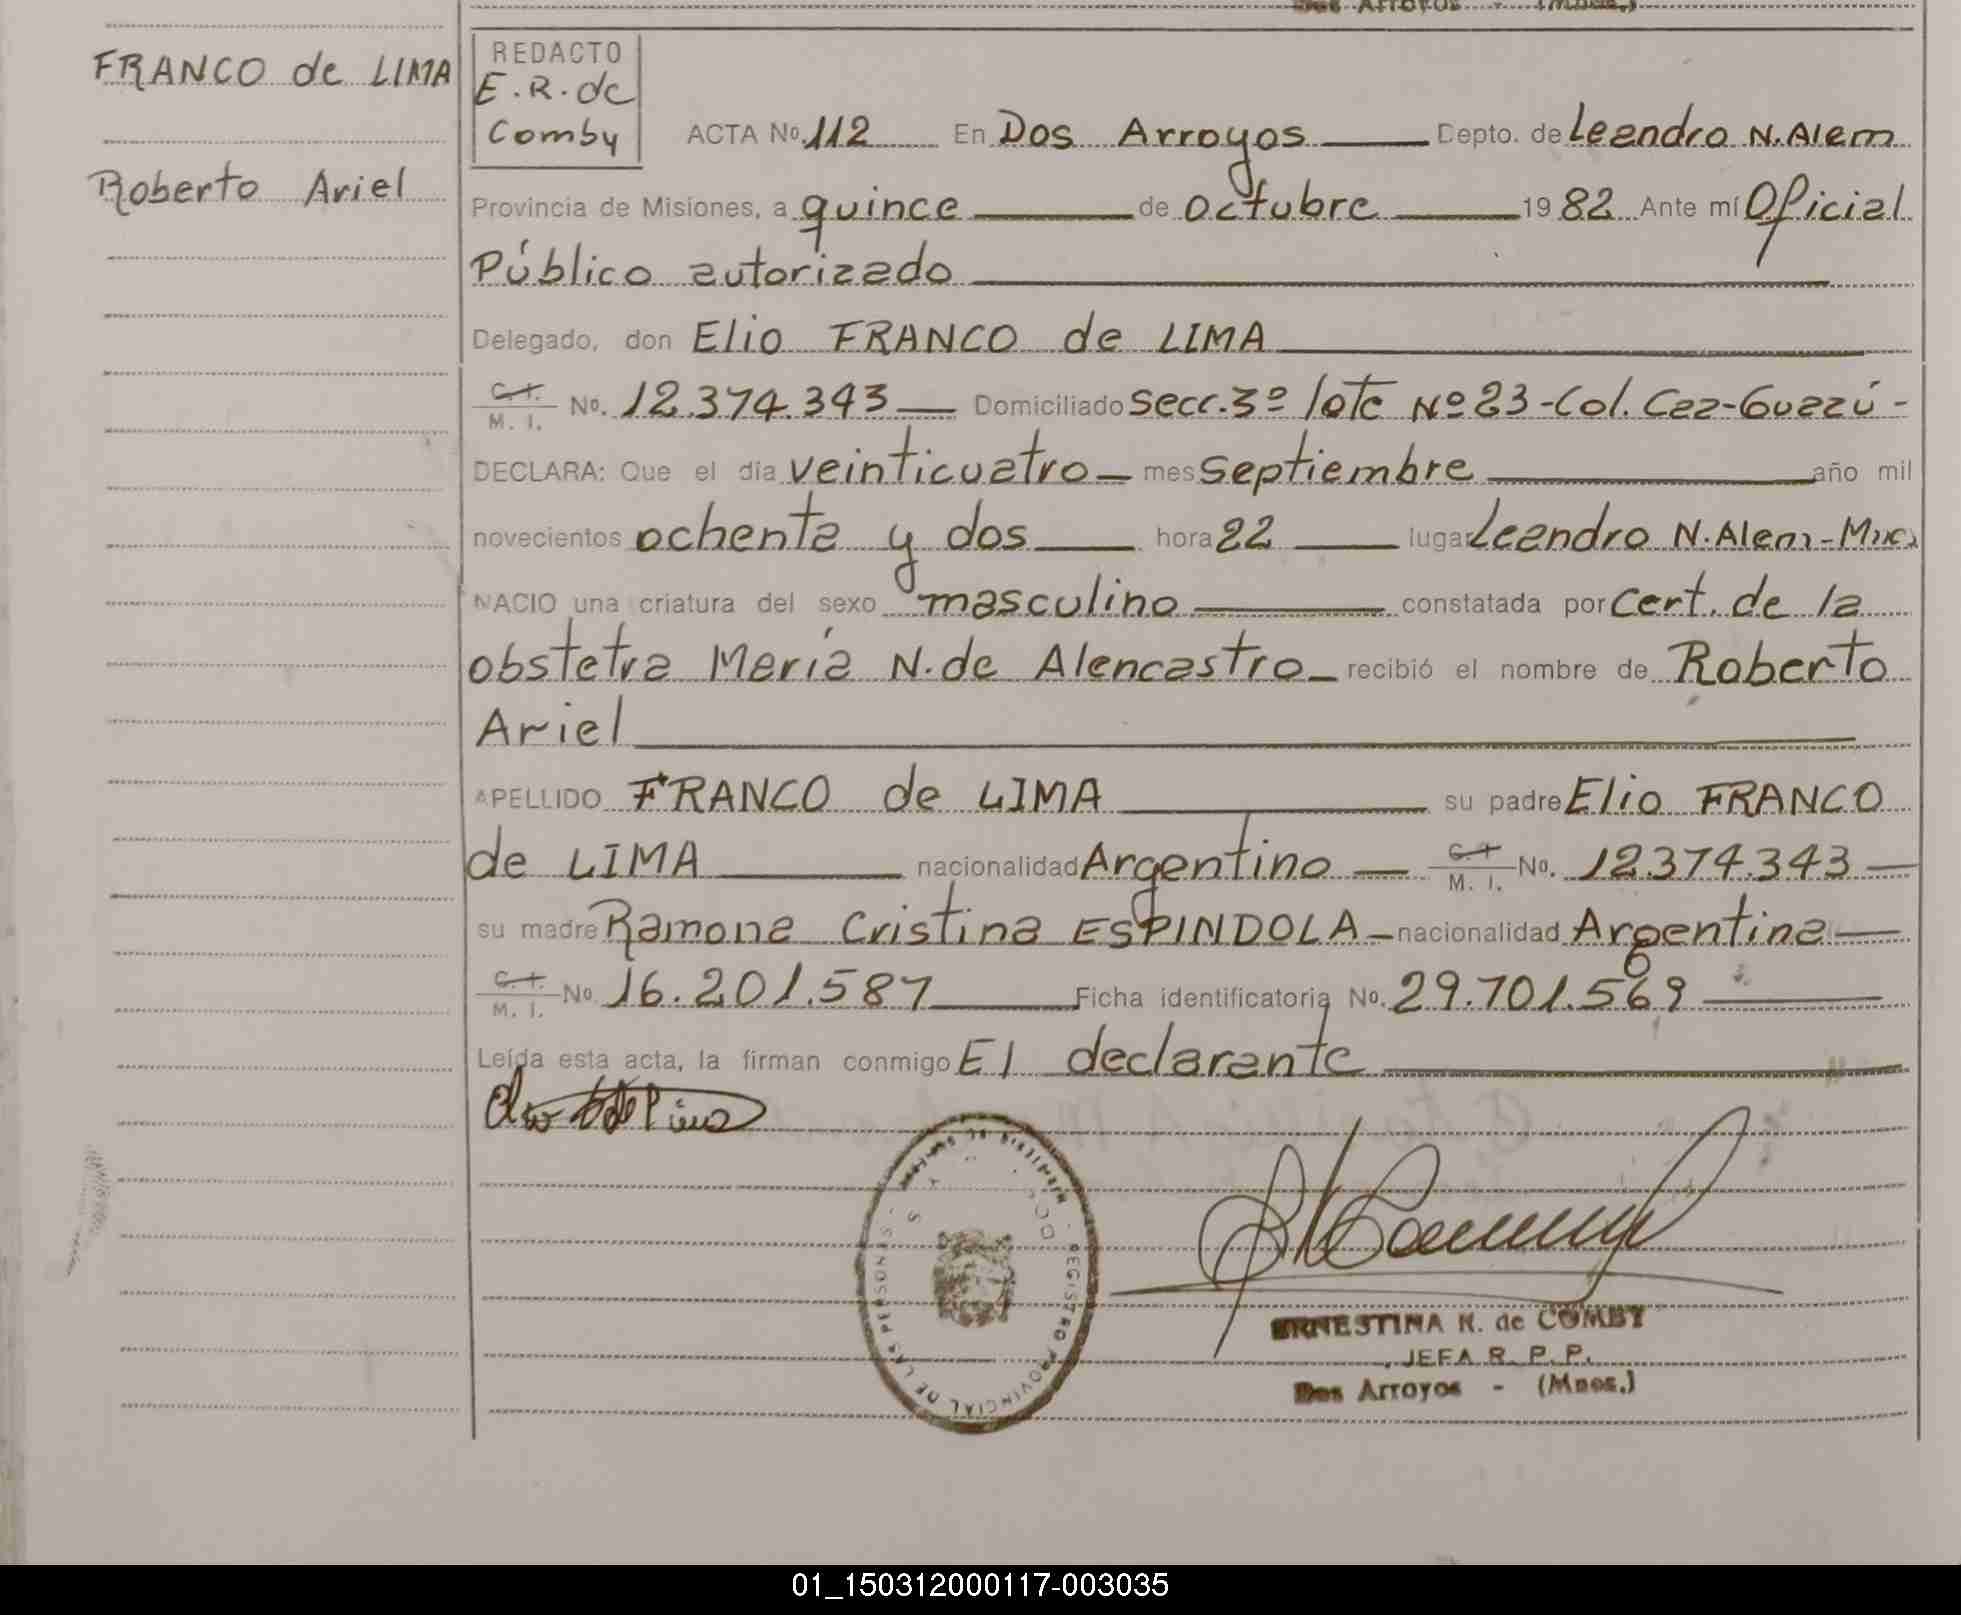 Dos Arroyos - (Mnes.)
FRANCO de LIMA
Roberto Ariel
REDACTO
E.R.de
Comby
ACTA No. 112 En Dos Arroyos Depto. de Leandro N. Alem
Provincia de Misiones, a quince de octubre 1982 Ante mí Oficial
Público autorizado
Delegado, don Elio FRANCO de LIMA
C.I. M. I. No. 12.374.343 Domiciliado Secc. 3º lote Nº 23-Col. Caa-Guazú-
DECLARA: Que el día veinticuatro mes septiembre año mil
novecientos ochenta y dos hora 22 lugar Leandro N. Alem-
NACIO una criatura del sexo masculino constatada por cert. de la
obstetra María N. de Alencastro recibió el nombre de Roberto
Ariel
APELLIDO FRANCO de LIMA su padre Elio FRANCO
de LIMA nacionalidad Argentino C.I. M. I. No. 12.374.343
su madre Ramona Cristina ESPINDOLA nacionalidad Argentina
C.I. M. I. No. 16.201.587 Ficha identificatoria No. 29.701.569
Leída esta acta, la firman conmigo El declarante
REGISTRO PROVINCIAL DE LAS PERSONAS
ERNESTINA R. de COMBY
JEFA R. P. P.
Dos Arroyos - (Mnes.)
01_150312000117-003035